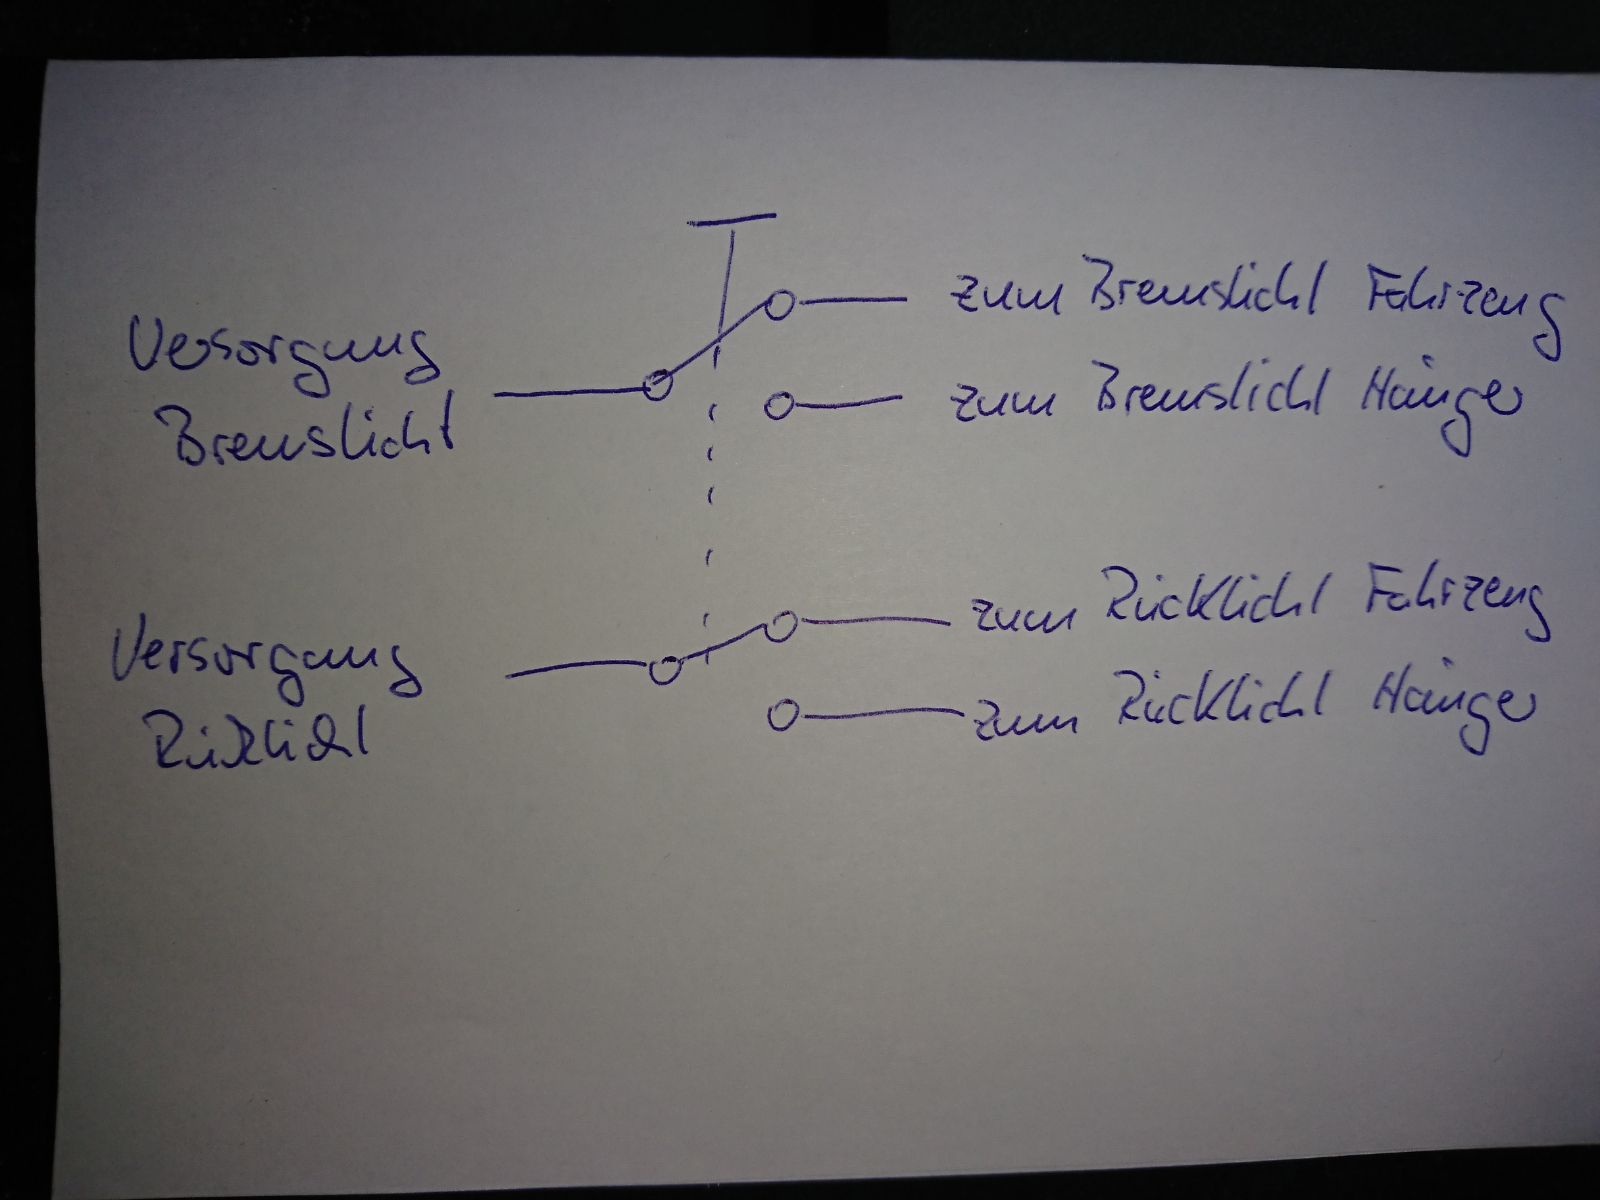 Versorgung
Bremslicht
zum Bremslicht Fahrzeug
zum Bremslicht Hänger
Versorgung
Rücklicht
zum Rücklicht Fahrzeug
zum Rücklicht Hänger